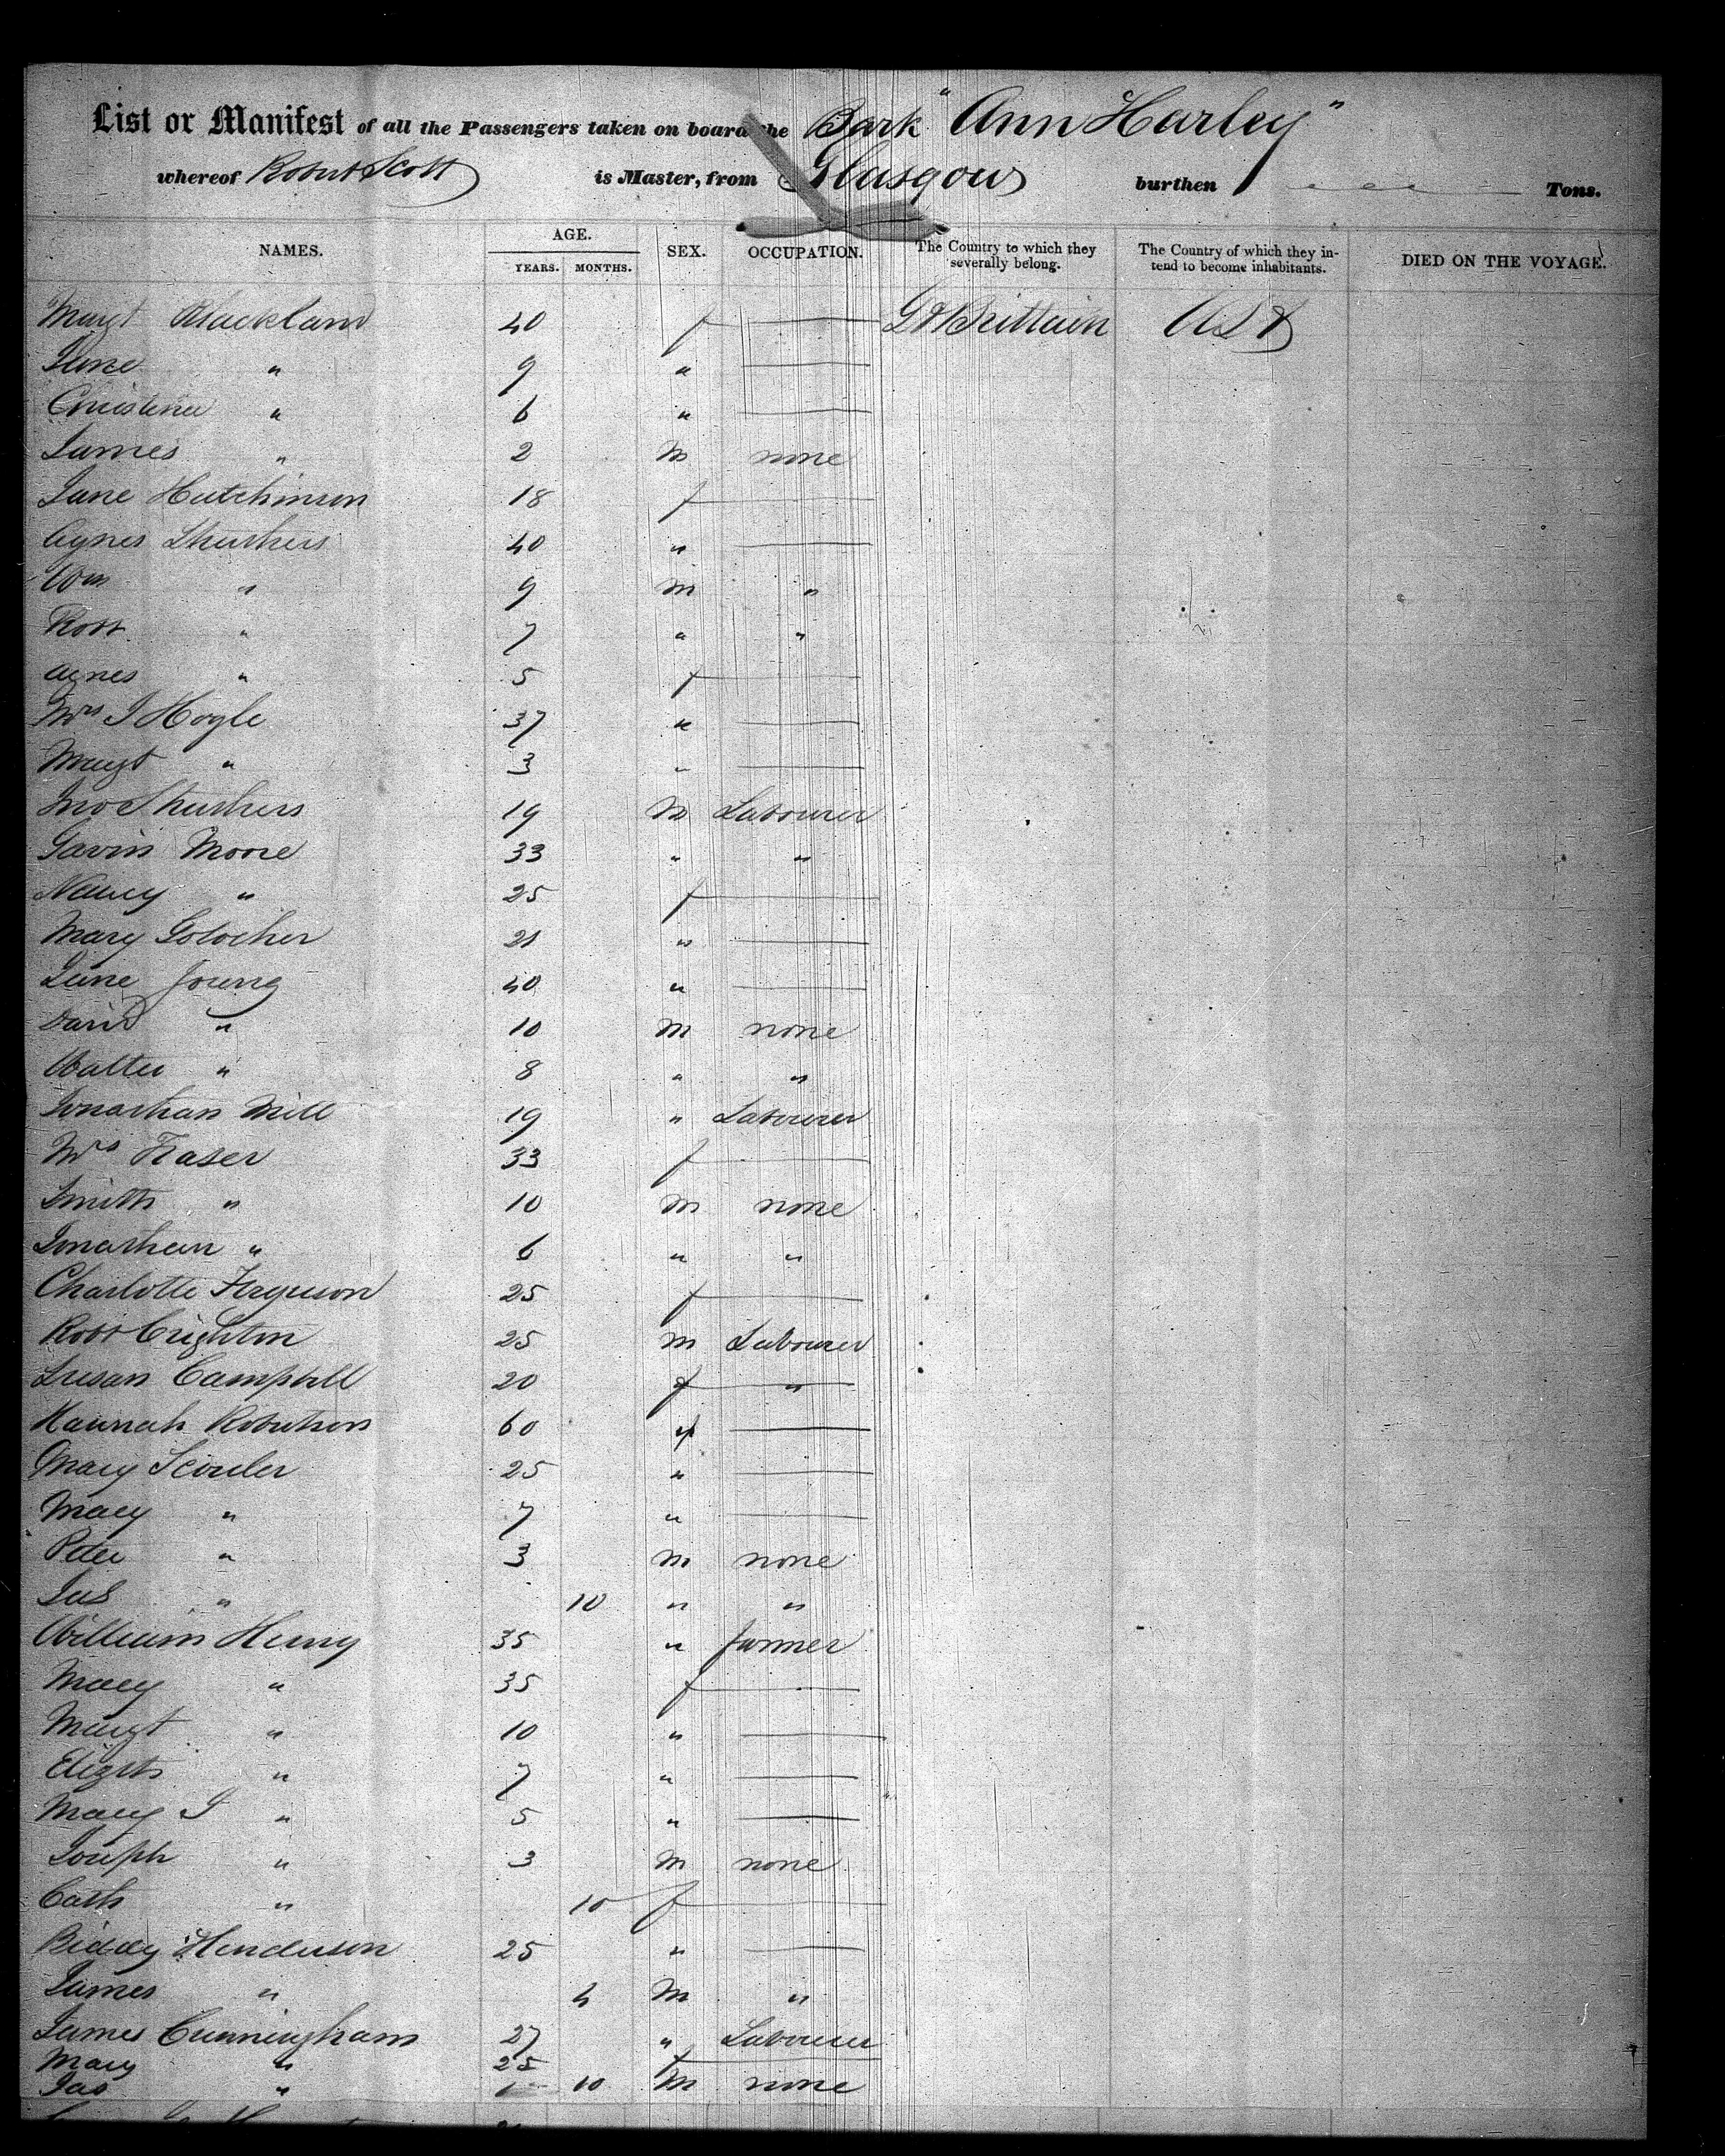 List or Manifest of all the Passengers taken on board the Bark "Ann Harley"
whereof Robert Scott is Master, from Glasgow burthen Tons.
NAMES. AGE. YEARS. MONTHS. SEX. OCCUPATION. The Country to which they severally belong. The Country of which they intend to become inhabitants. DIED ON THE VOYAGE.
Margt Blackland 40 f — Gt Brittain U S A
Jane " 9 " —
Christina " 6 " —
James " 2 M none
Jane Hutchinson 18 f —
Agnes Struthers 40 " —
Wm " 9 M "
Robt " 7 " "
Agnes " 5 f —
Mrs J Hogle 37 " —
Margt " 3 " —
Jno Struthers 19 M Labourer
Gavin Moore 33 " "
Nancy " 25 f —
Mary 21 " —
Jane Young 40 " —
David " 10 M none
Walter " 8 " "
Jonathan Mill 19 " Labourer
Mrs Fraser 33 f —
Smith " 10 M none
Jonathan " 6 " "
Charlotte Ferguson 25 f —
Robt Crighton 25 M Labourer
Susan Campbell 20 f "
Hannah Robertson 60 f —
Mary Scouler 25 " —
Mary " 7 " —
Peter " 3 M none
Jas " 10 " "
William Henry 35 " farmer
Mary " 35 f —
Margt " 10 " —
Elizth " 7 " —
Mary J " 5 " —
Joseph " 3 M none
Cath " 10 f —
Biddy Henderson 25 " —
James " 4 M "
James Cunningham 27 " Labourer
Mary " 25 f —
Jas " 10 M none